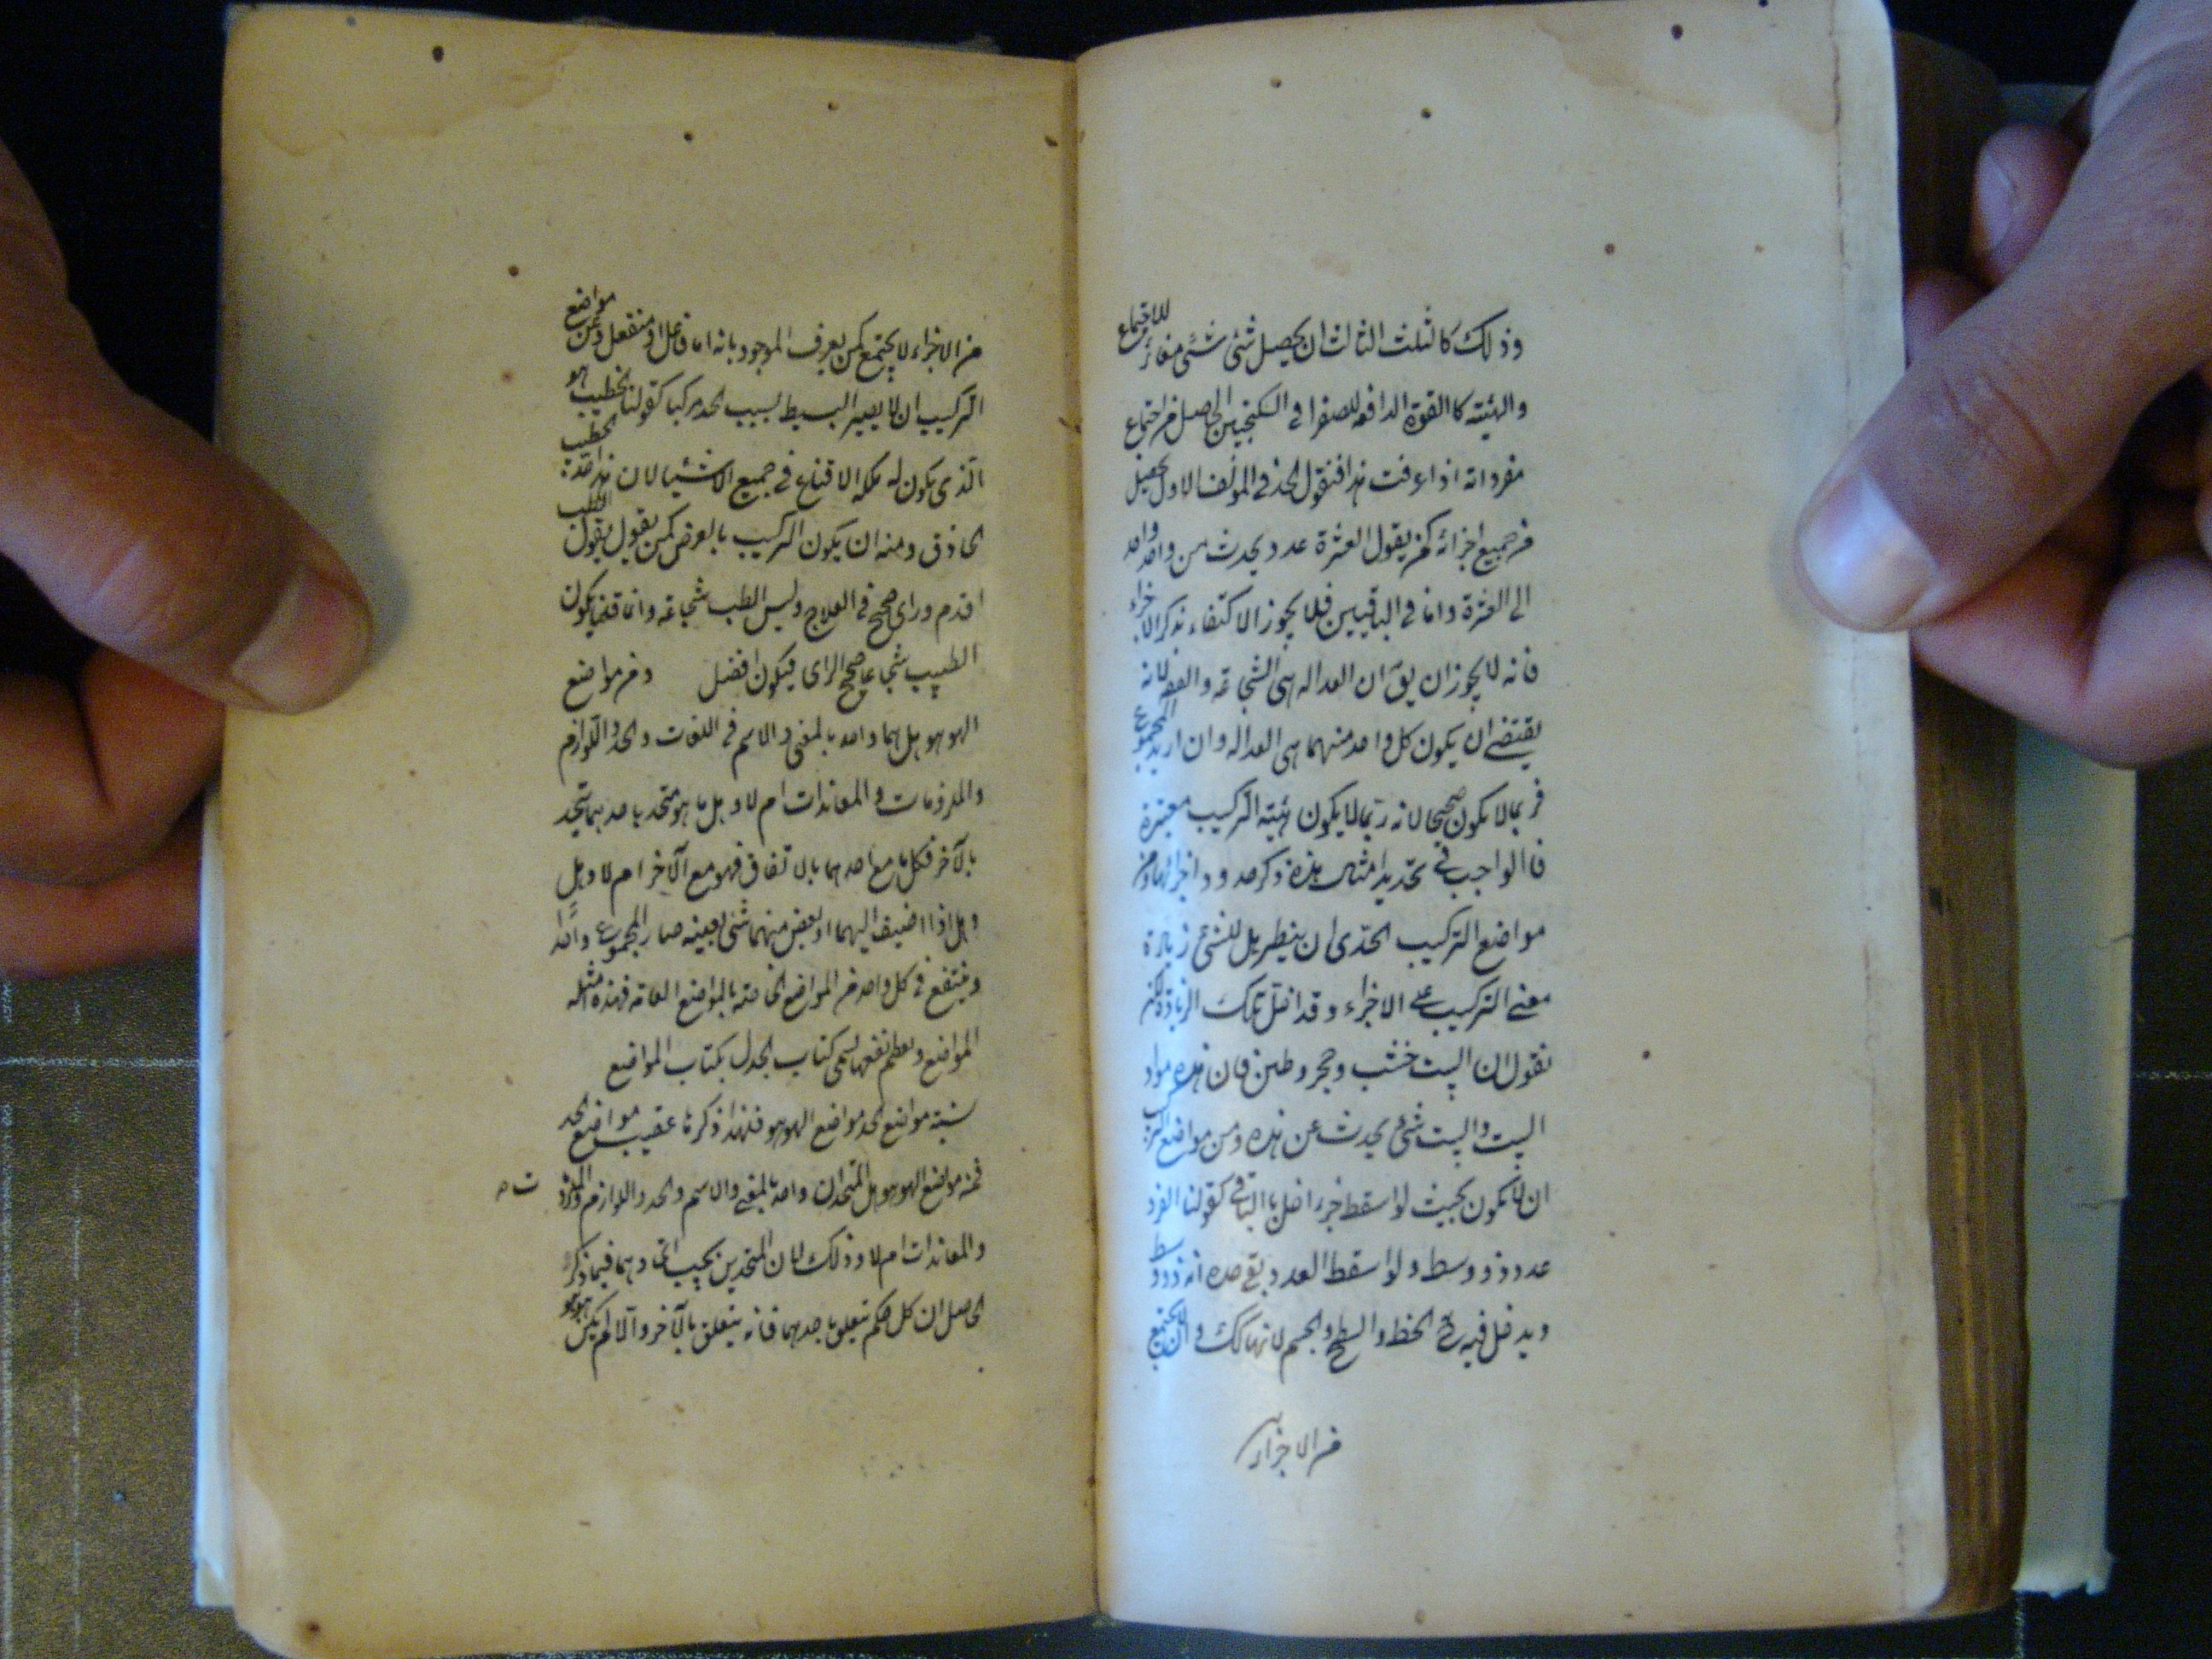 وذلك كالمثلث الثالث ان يحصل شئ شئ مغائر للاجتماع
والهيئة كالقوة الدافعه للصفرا فى السكنجبين الحاصل من اجتماع
مفرداته اذا عرفت هذا فنقول الحد فى المؤلف الاول يحصل
من جميع اجزائه كمن يقول العشرة عدد يحدث من واحد واحد
الى العشرة واما فى الباقيين فلا يجوز الاكتفاء بذكر الاجزاء
فانه لا يجوز ان يق ان العداله هى الشجاعة والعفه لانه
يقتضى ان يكون كل واحد منهما هى العداله وان اريد المجموع
فربما لا يكون صحيحا لانه ربما لا يكون هيئته التركيب معتبرة
فالواجب فى تحديد امثال هذه ذكر حدود اجزائها ومن
مواضع التركيب الحدى ان ينظر هل للشئ زيادة
معنى التركيب على الاجزاء وقد اخل بتلك الزيادة كمن
نقول ان البيت خشب وحجر وطين فان هذه مواد
البيت والبيت شئ يحدث عن هذه ومن مواضع التركيب
ان لا يكون بحيث لو اسقط جزء اخل بالباقى كقولنا الفرد
عدد ذو وسط ولو اسقط العدد بقى حده انه ذو وسط
ويدخل فيه ح الخط والسطح والجسم لانها كك وان يجتمع
من الاجزاء
من الاجزاء لا يجتمع كمن يعرف الموجود بانه اما فاعل او منفعل ومن مواضع
التركيب ان لا يصير البسيط بسبب الحد مركبا كقولنا الخطيب هو
الذى يكون له ملكه الاقناع فى جميع الاشيا لان هذا حد الخطيب
الحاذق ومنه ان يكون التركيب بالعرض كمن يقول يقول الطب
اقدام وراى صحيح فى العلاج وليس الطب شجاعة وانما قد يكون
الطبيب شجاعا صحيح الراى فيكون افضل ومن مواضع
الهوهو هل هما واحد بالمعنى والاسم فى اللغات والحد واللوازم
والملزومات والمعاندات ام لا وهل ما هو متحد باحدهما يتحد
بالآخر فكل ما مع احدهما بالاتفاق فهو مع الآخر ام لا وهل
وهل اذا اضيف اليهما او نقص منهما شئ بعينه صار المجموع واحدا
وينتفع فى كل واحد من المواضع الخاصة بالمواضع العامة فهذه امثله
المواضع ولعظم نفعها سمى كتاب الجدل بكتاب المواضع
نسبة مواضع الحد مواضع الهوهو فلهذا ذكرنا عقيب مواضع الحد
فمنه مواضع الهوهو هل المتحدان واحد بالمعنى والاسم والحد واللوازم
والمعاندات ام لا وذلك لان المتحدين يجب اتحادهما فيما ذكر
الحاصل ان كل حكم تتعلق باحدهما فانه يتعلق بالآخر والا لم يكن هوهو